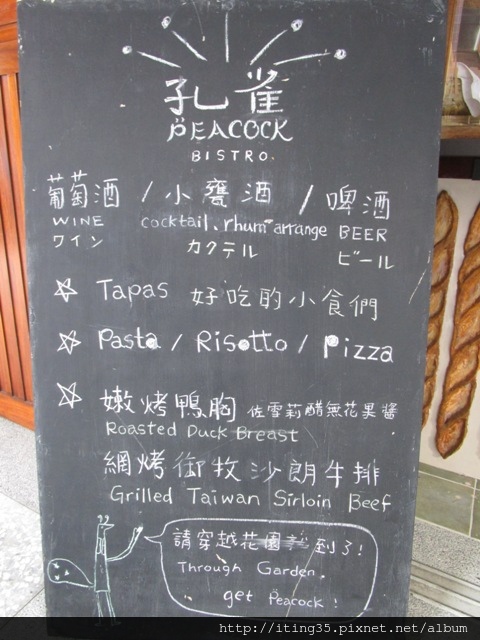 孔雀
PEACOCK
BISTRO.
葡萄酒 / 小甕酒 / 啤酒
WINE cocktail. rhum arrange BEER
ワイン カクテル ビール
☆ Tapas 好吃的小食們
☆ Pasta / Risotto / Pizza
☆ 嫩烤鴨胸 佐雪莉醋無花果醬
Roasted Duck Breast
網烤御牧沙朗牛排
Grilled Taiwan Sirloin Beef
請穿越花園 到了!
Through Garden.
get Peacock!
http://iting35.pixnet.net/album